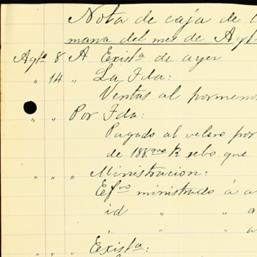 Nota de caja de l
mana del mes de Agto
Agto 8 A Exista de ayer
" 14 " La Fda:
Ventas al pormeno
" " Por Fda:
Pagado al velero por
de 188 K sebo que
" " " Ministracion:
Efvo ministrado á a
id " " a
" " a
" " " Exista: